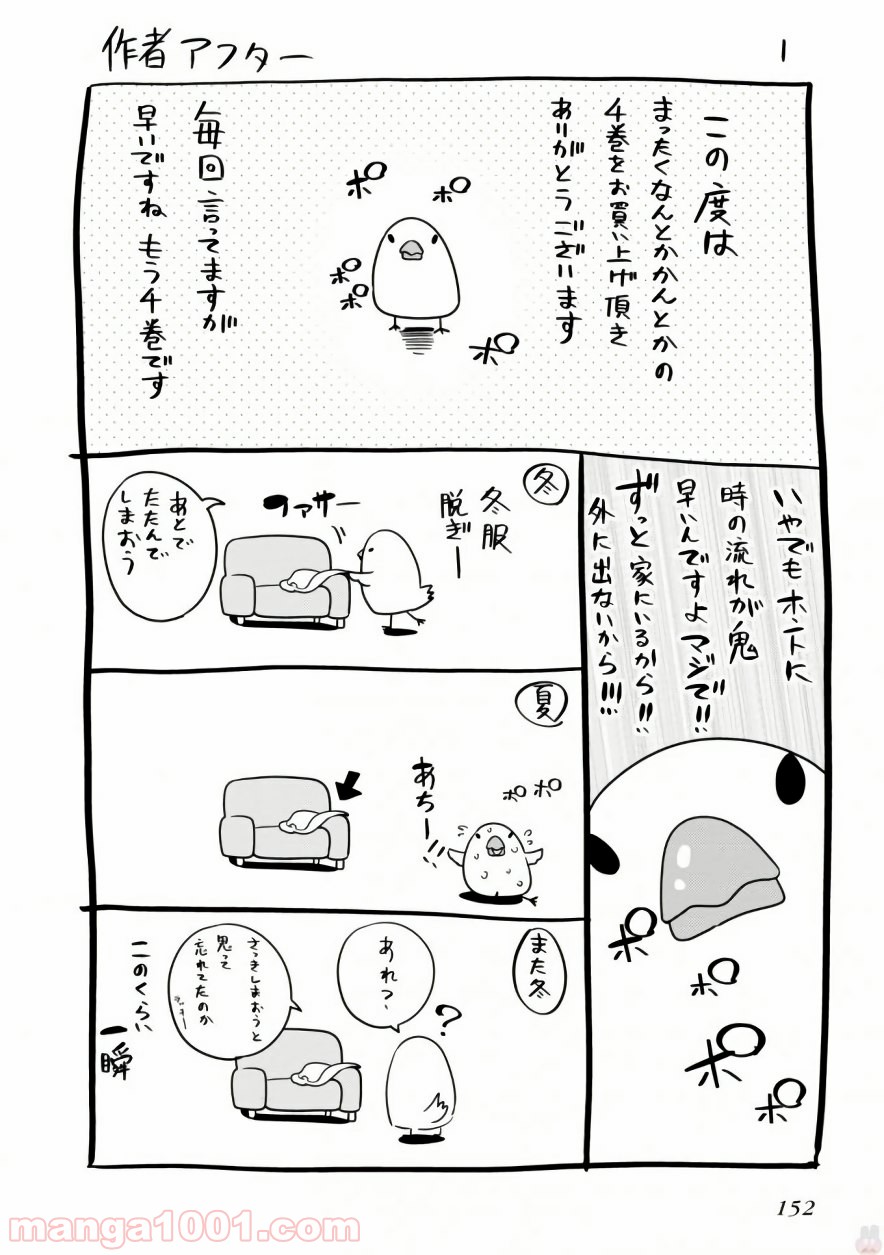 作者アフター
1
この度は
まったくなんとかかんとかの
4巻をお買い上げ頂き
ありがとうございます
ポ
ポ
ポ
ポ
ポ
毎回言ってますが
早いですね もう4巻です
いやでもホントに
時の流れが鬼
早いんですよマジで!!
ずっと家にいるから!!
外に出ないから!!!
ポ
ポ
ポ
ポ
冬
冬服
脱ぎー
ファサー
あとで
たたんで
しまおう
夏
ポ
ポ
あちー!!
また冬
?
あれっ、
さっきしまおうと
思って
忘れてたのか
このくらい
一瞬
152
manga1001.com